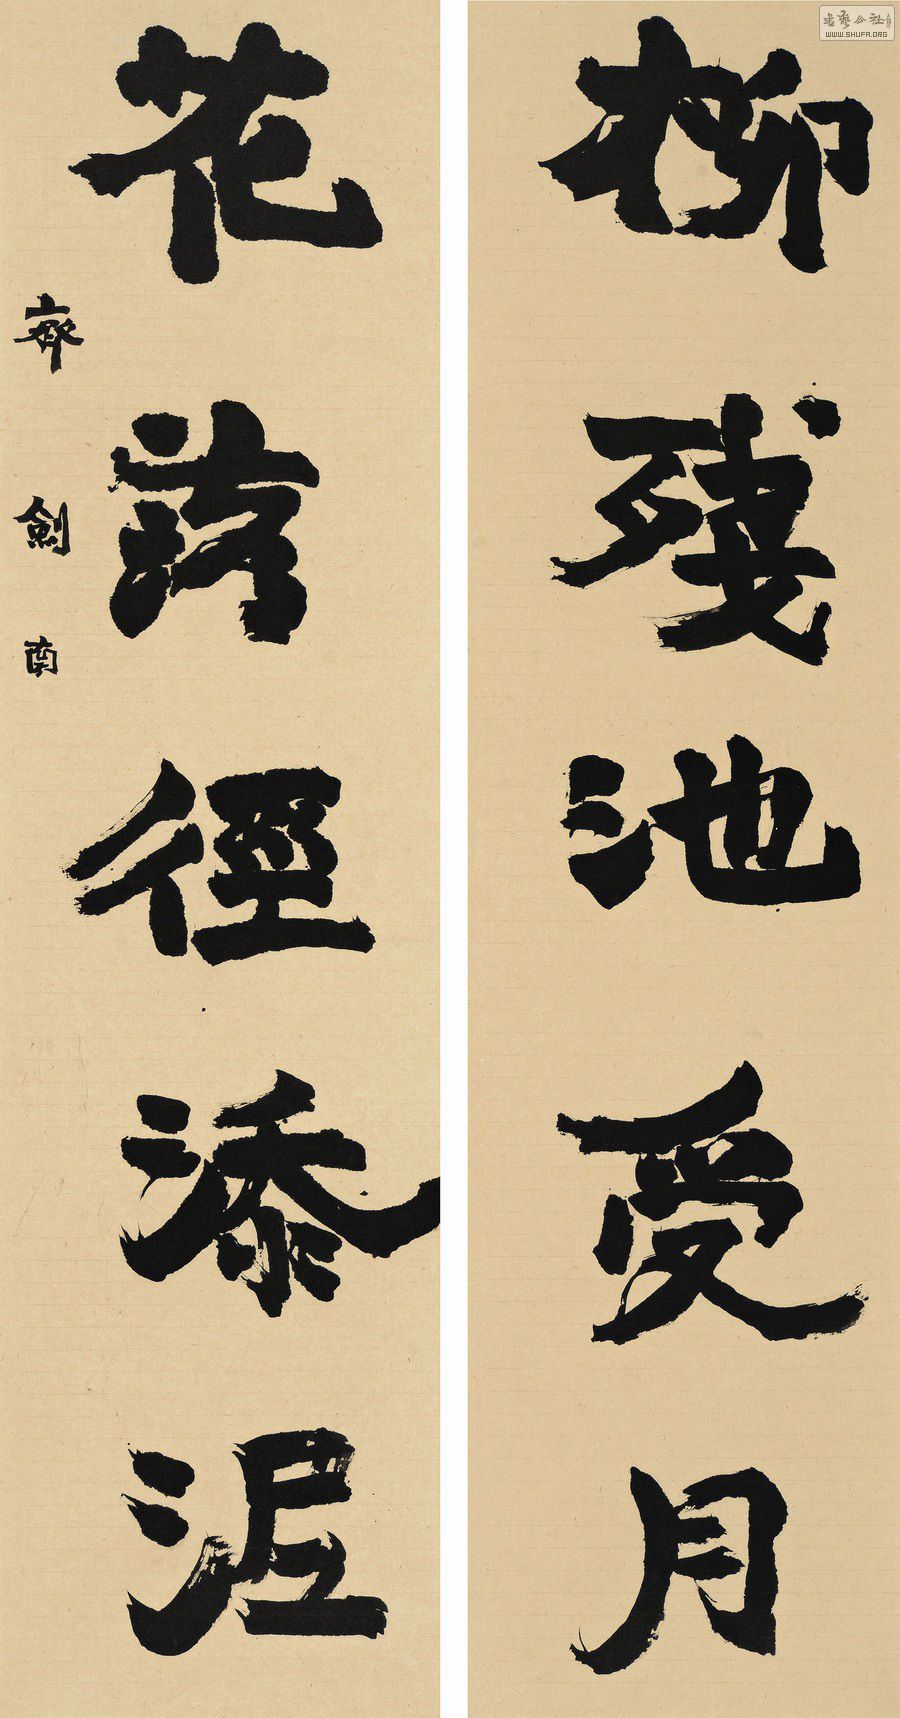 柳残池受月
花落径添泥
齊劍南
書藝公社
WWW.SHUFA.ORG